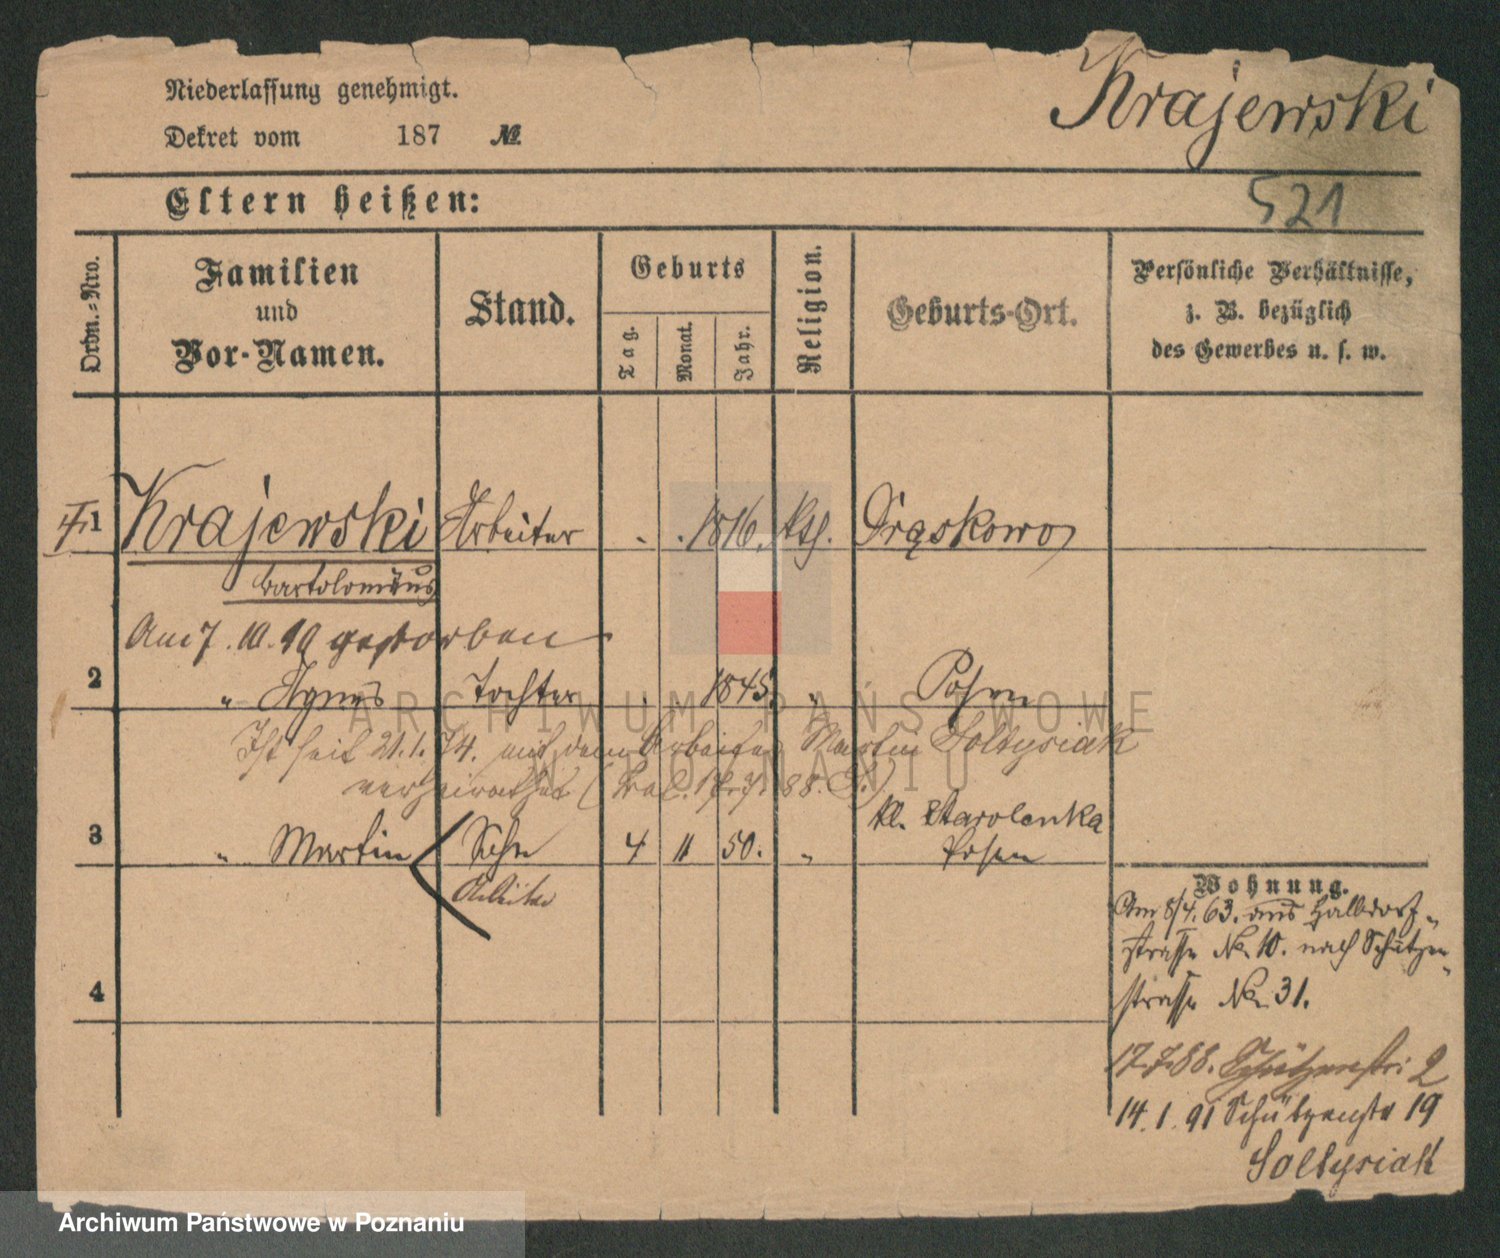 Niederlassung genehmigt.
Dekret vom 187 №
Krajewski
Eltern heißen:
521
Ordn.-Nro.
Familien
und
Vor-Namen.
Stand.
Geburts
Tag.
Monat.
Jahr.
Religion.
Geburts-Ort.
Persönliche Verhältnisse,
z. B. bezüglich
des Gewerbes u. s. w.
1 Krajewski Arbeiter . . 1816. kth.
Bartolomäus
Am 7. 10. 90 gestorben
2 " Agnes Tochter 1845. " Posen
Ist seit 21.1.74. mit dem Arbeiter Martin Soltysiak
verheirathet
kl. Starolenka
3 " Martin Sohn 4 11 50. " Posen
Arbeiter
Wohnung.
Am 8/4. 63. aus Halbdorf-
strasse No. 10. nach Schützen-
strasse No. 31.
4
17.7.88. Schützenstr. 2
14.1.91 Schützenstr 19
Soltysiak
ARCHIWUM PAŃSTWOWE
W POZNANIU
Archiwum Państwowe w Poznaniu